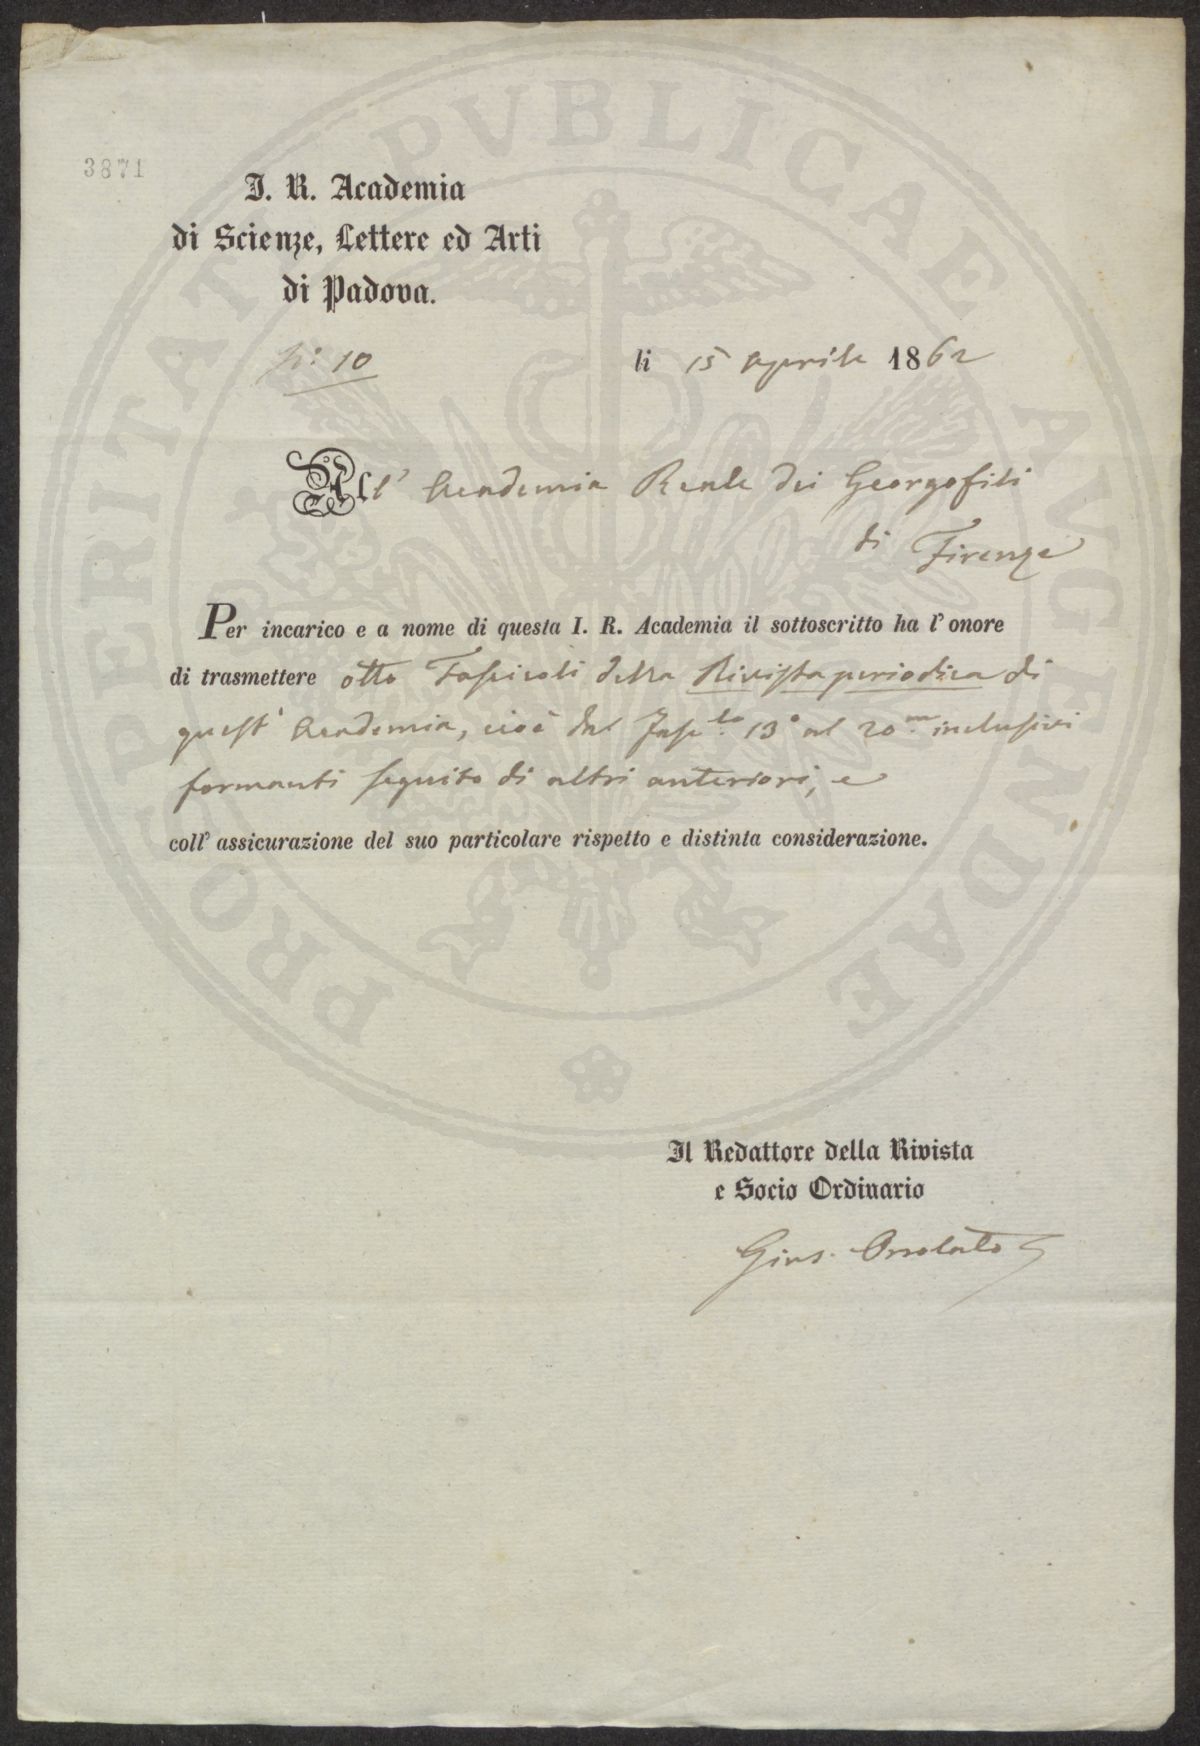 PROSPERITATI PVBLICAE AVGENDAE
3871
I. R. Academia
di Scienze, Lettere ed Arti
di Padova.
N.º 10
li 15 Aprile 1862
All' Academia Reale dei Georgofili
di Firenze
Per incarico e a nome di questa I. R. Academia il sottoscritto ha l'onore
di trasmettere otto Fascicoli della Rivista periodica di
quest' Academia, cioè dal Fasc.lo 13º al 20.mo inclusivi
formanti seguito di altri anteriori, e
coll' assicurazione del suo particolare rispetto e distinta considerazione.
Il Redattore della Rivista
e Socio Ordinario
Gius. Orsolato